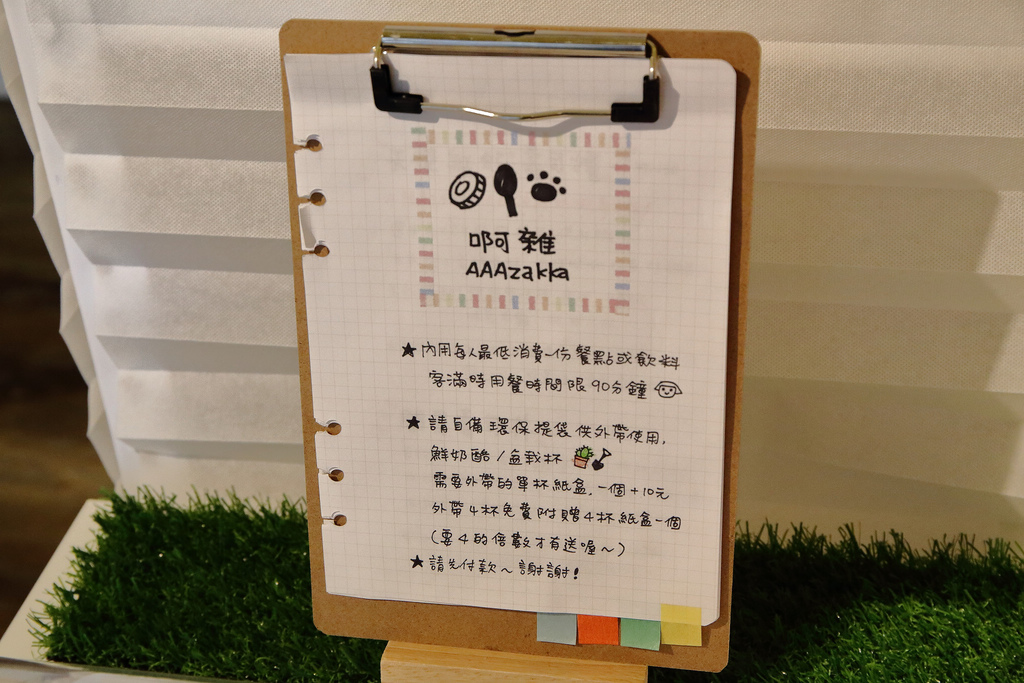 啊雜
AAAzakka
★內用每人最低消費一份餐點或飲料
客滿時用餐時間限90分鐘
★請自備環保提袋供外帶使用,
鮮奶酪/盆栽杯
需要外帶的單杯紙盒,一個+10元
外帶4杯免費附贈4杯紙盒一個
(要4的倍數才有送喔~)
★請先付款~謝謝!